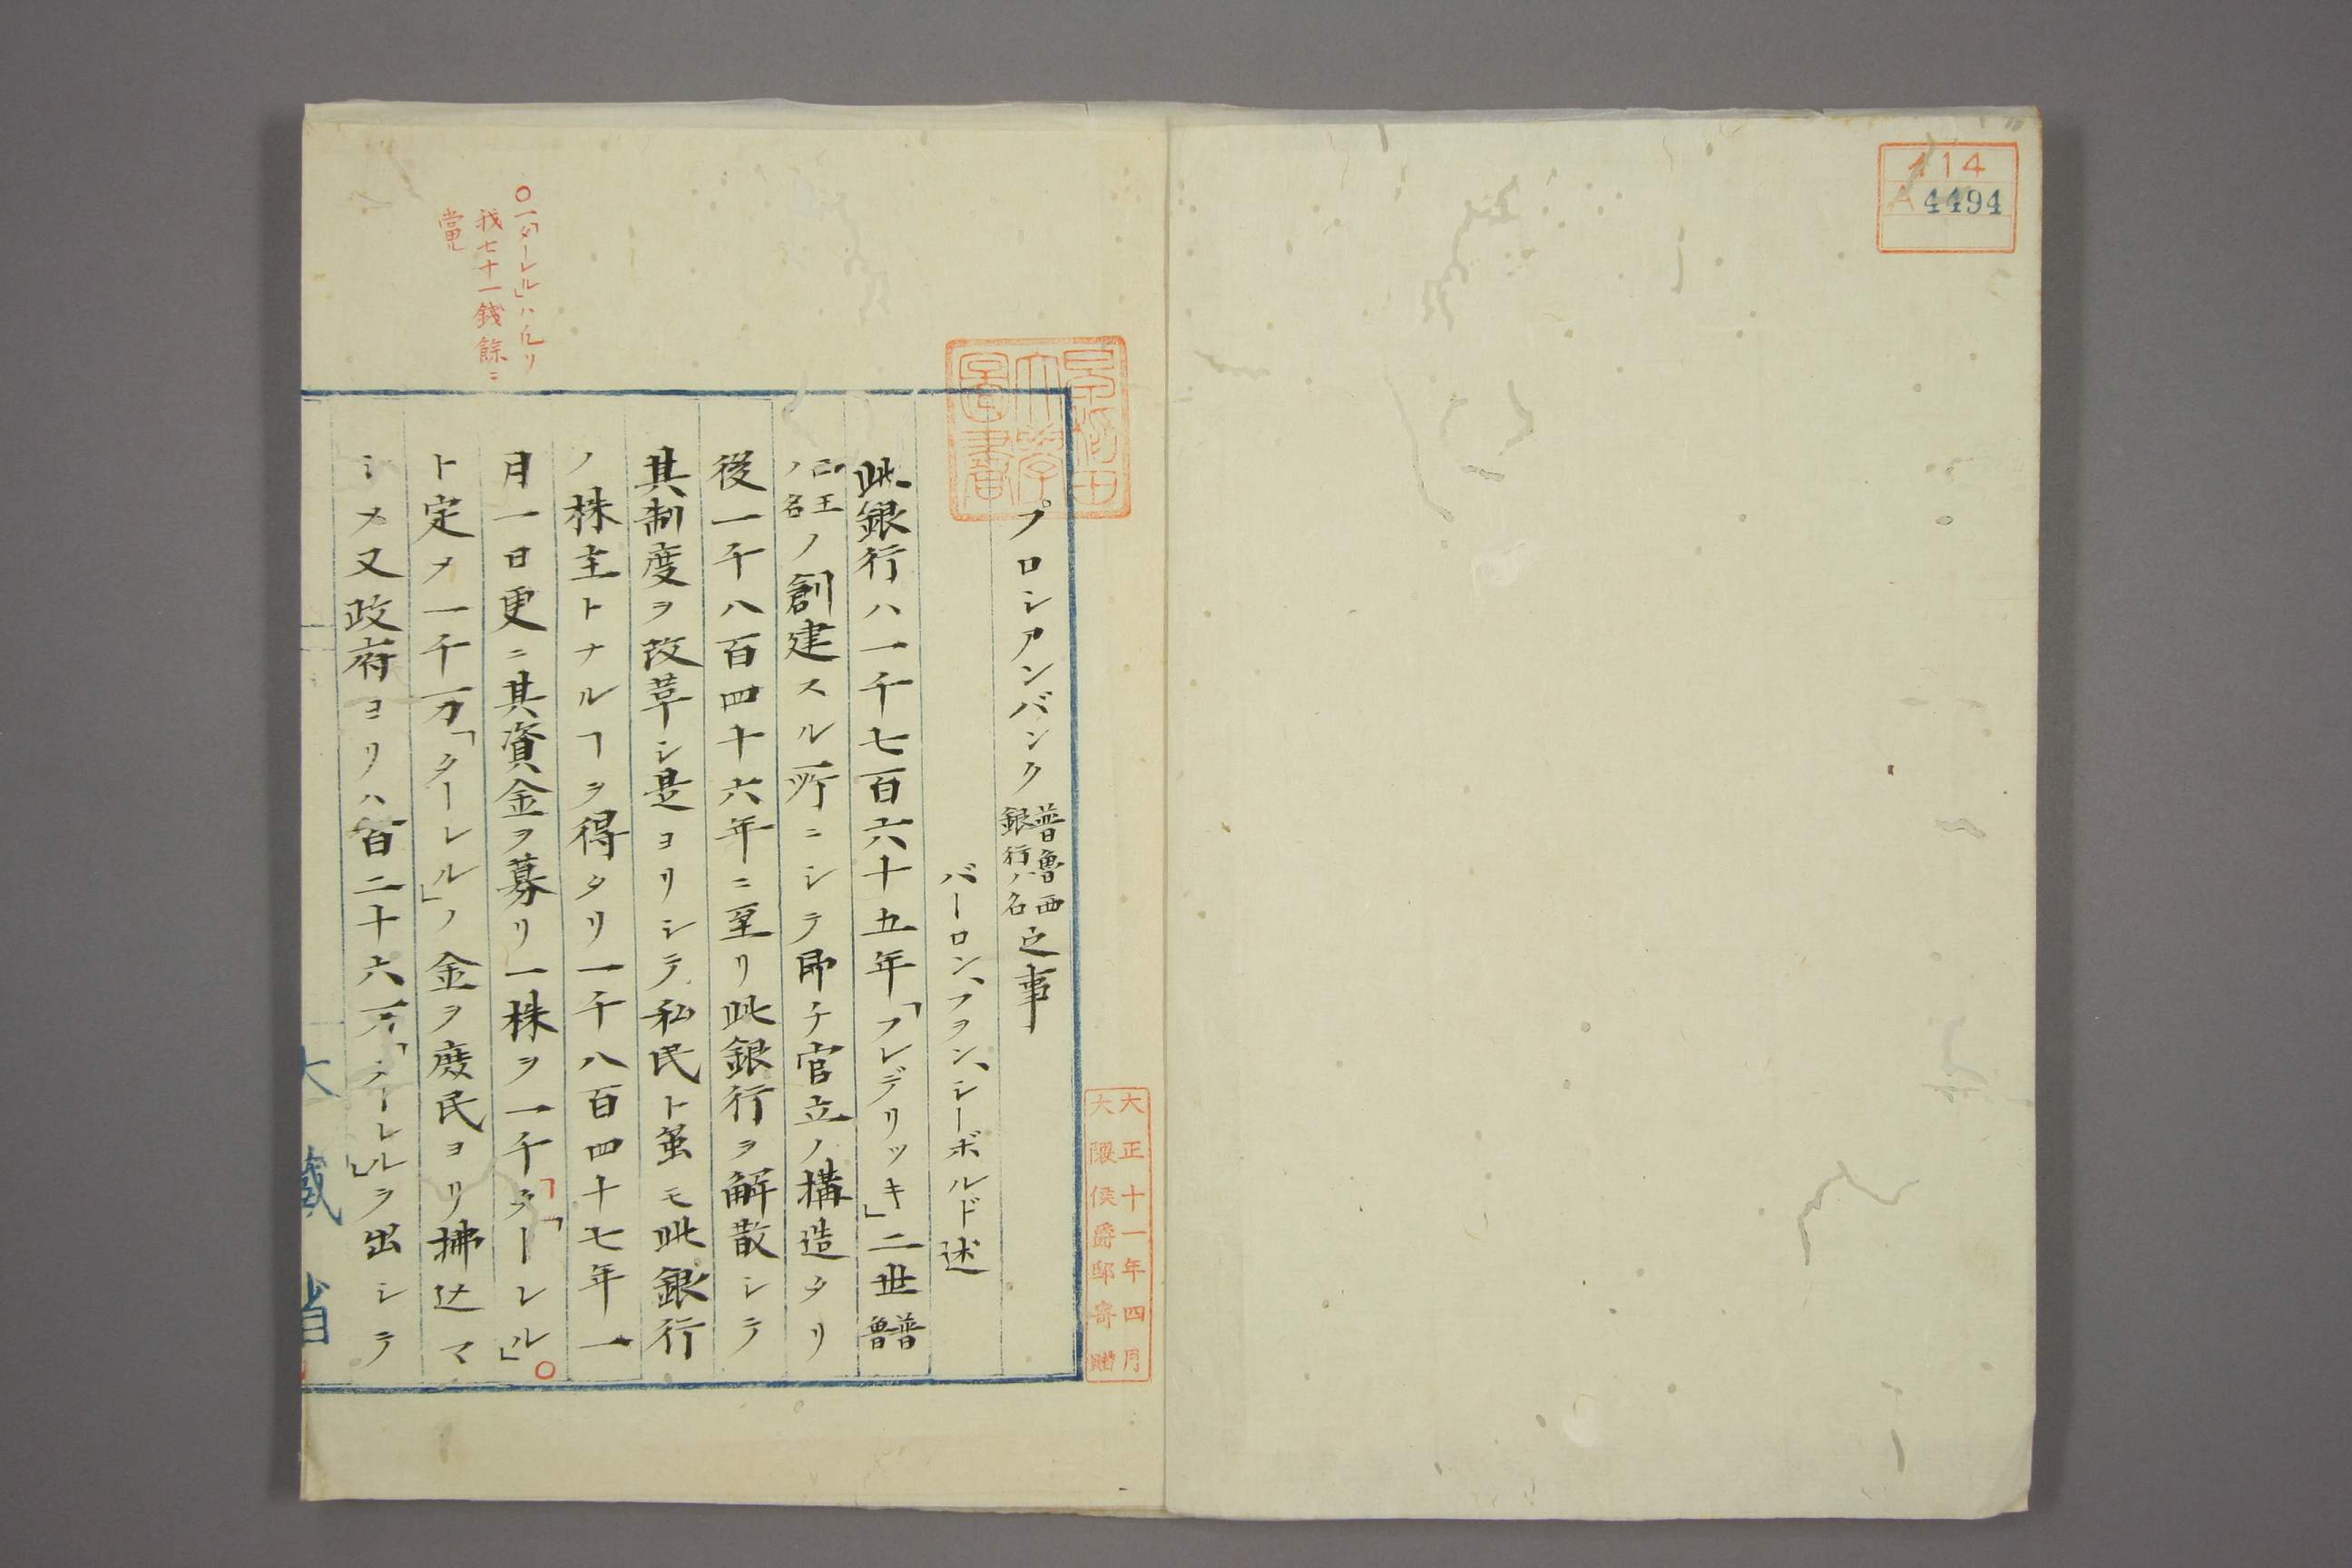 114
A4494
早稲田大学図書
大正十一年四月
大隈侯爵邸寄贈
プロシアンバンク普魯西銀行ノ名之事
バーロン、フヲン、シーボルド述
此銀行ハ一千七百六十五年「フレデリッキ」二世普魯
国王ノ名ノ創建スル所ニシテ即チ官立ノ構造タリ
後一千八百四十六年ニ至リ此銀行ヲ解散シテ
其制度ヲ改革シ是ヨリシテ私民ト虽モ此銀行
ノ株主トナルヿヲ得タリ一千八百四十七年一
月一日更ニ其資金ヲ募リ一株ヲ一千「ターレル」○
ト定メ一千万「ターレル」ノ金ヲ庶民ヨリ拂込マ
シメ又政府ヨリハ百二十六万「ターレル」ヲ出シテ
○一「ターレル」ハ凡ソ
我七十一錢餘ニ
當ル
大藏省